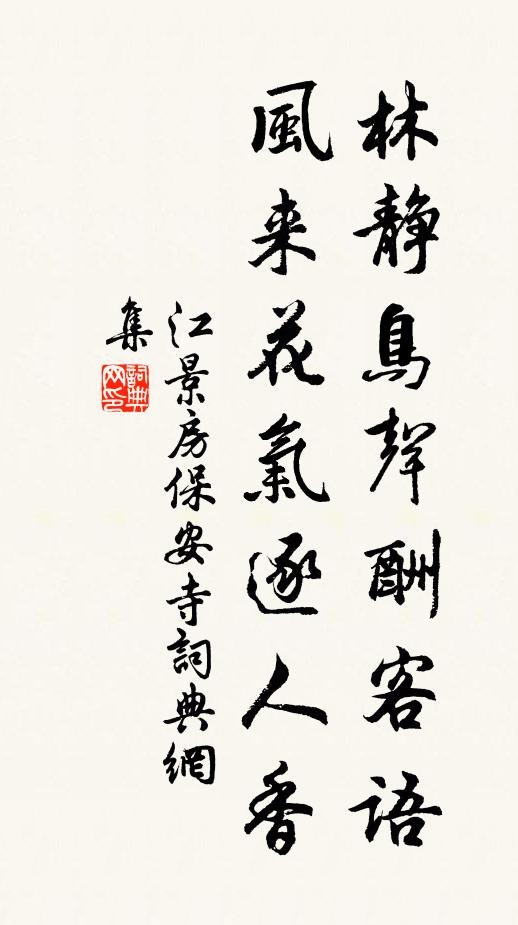 林静鳥聲酬客語
風来花氣逐人香
江景房保安寺詞典網
集
詞典
网印